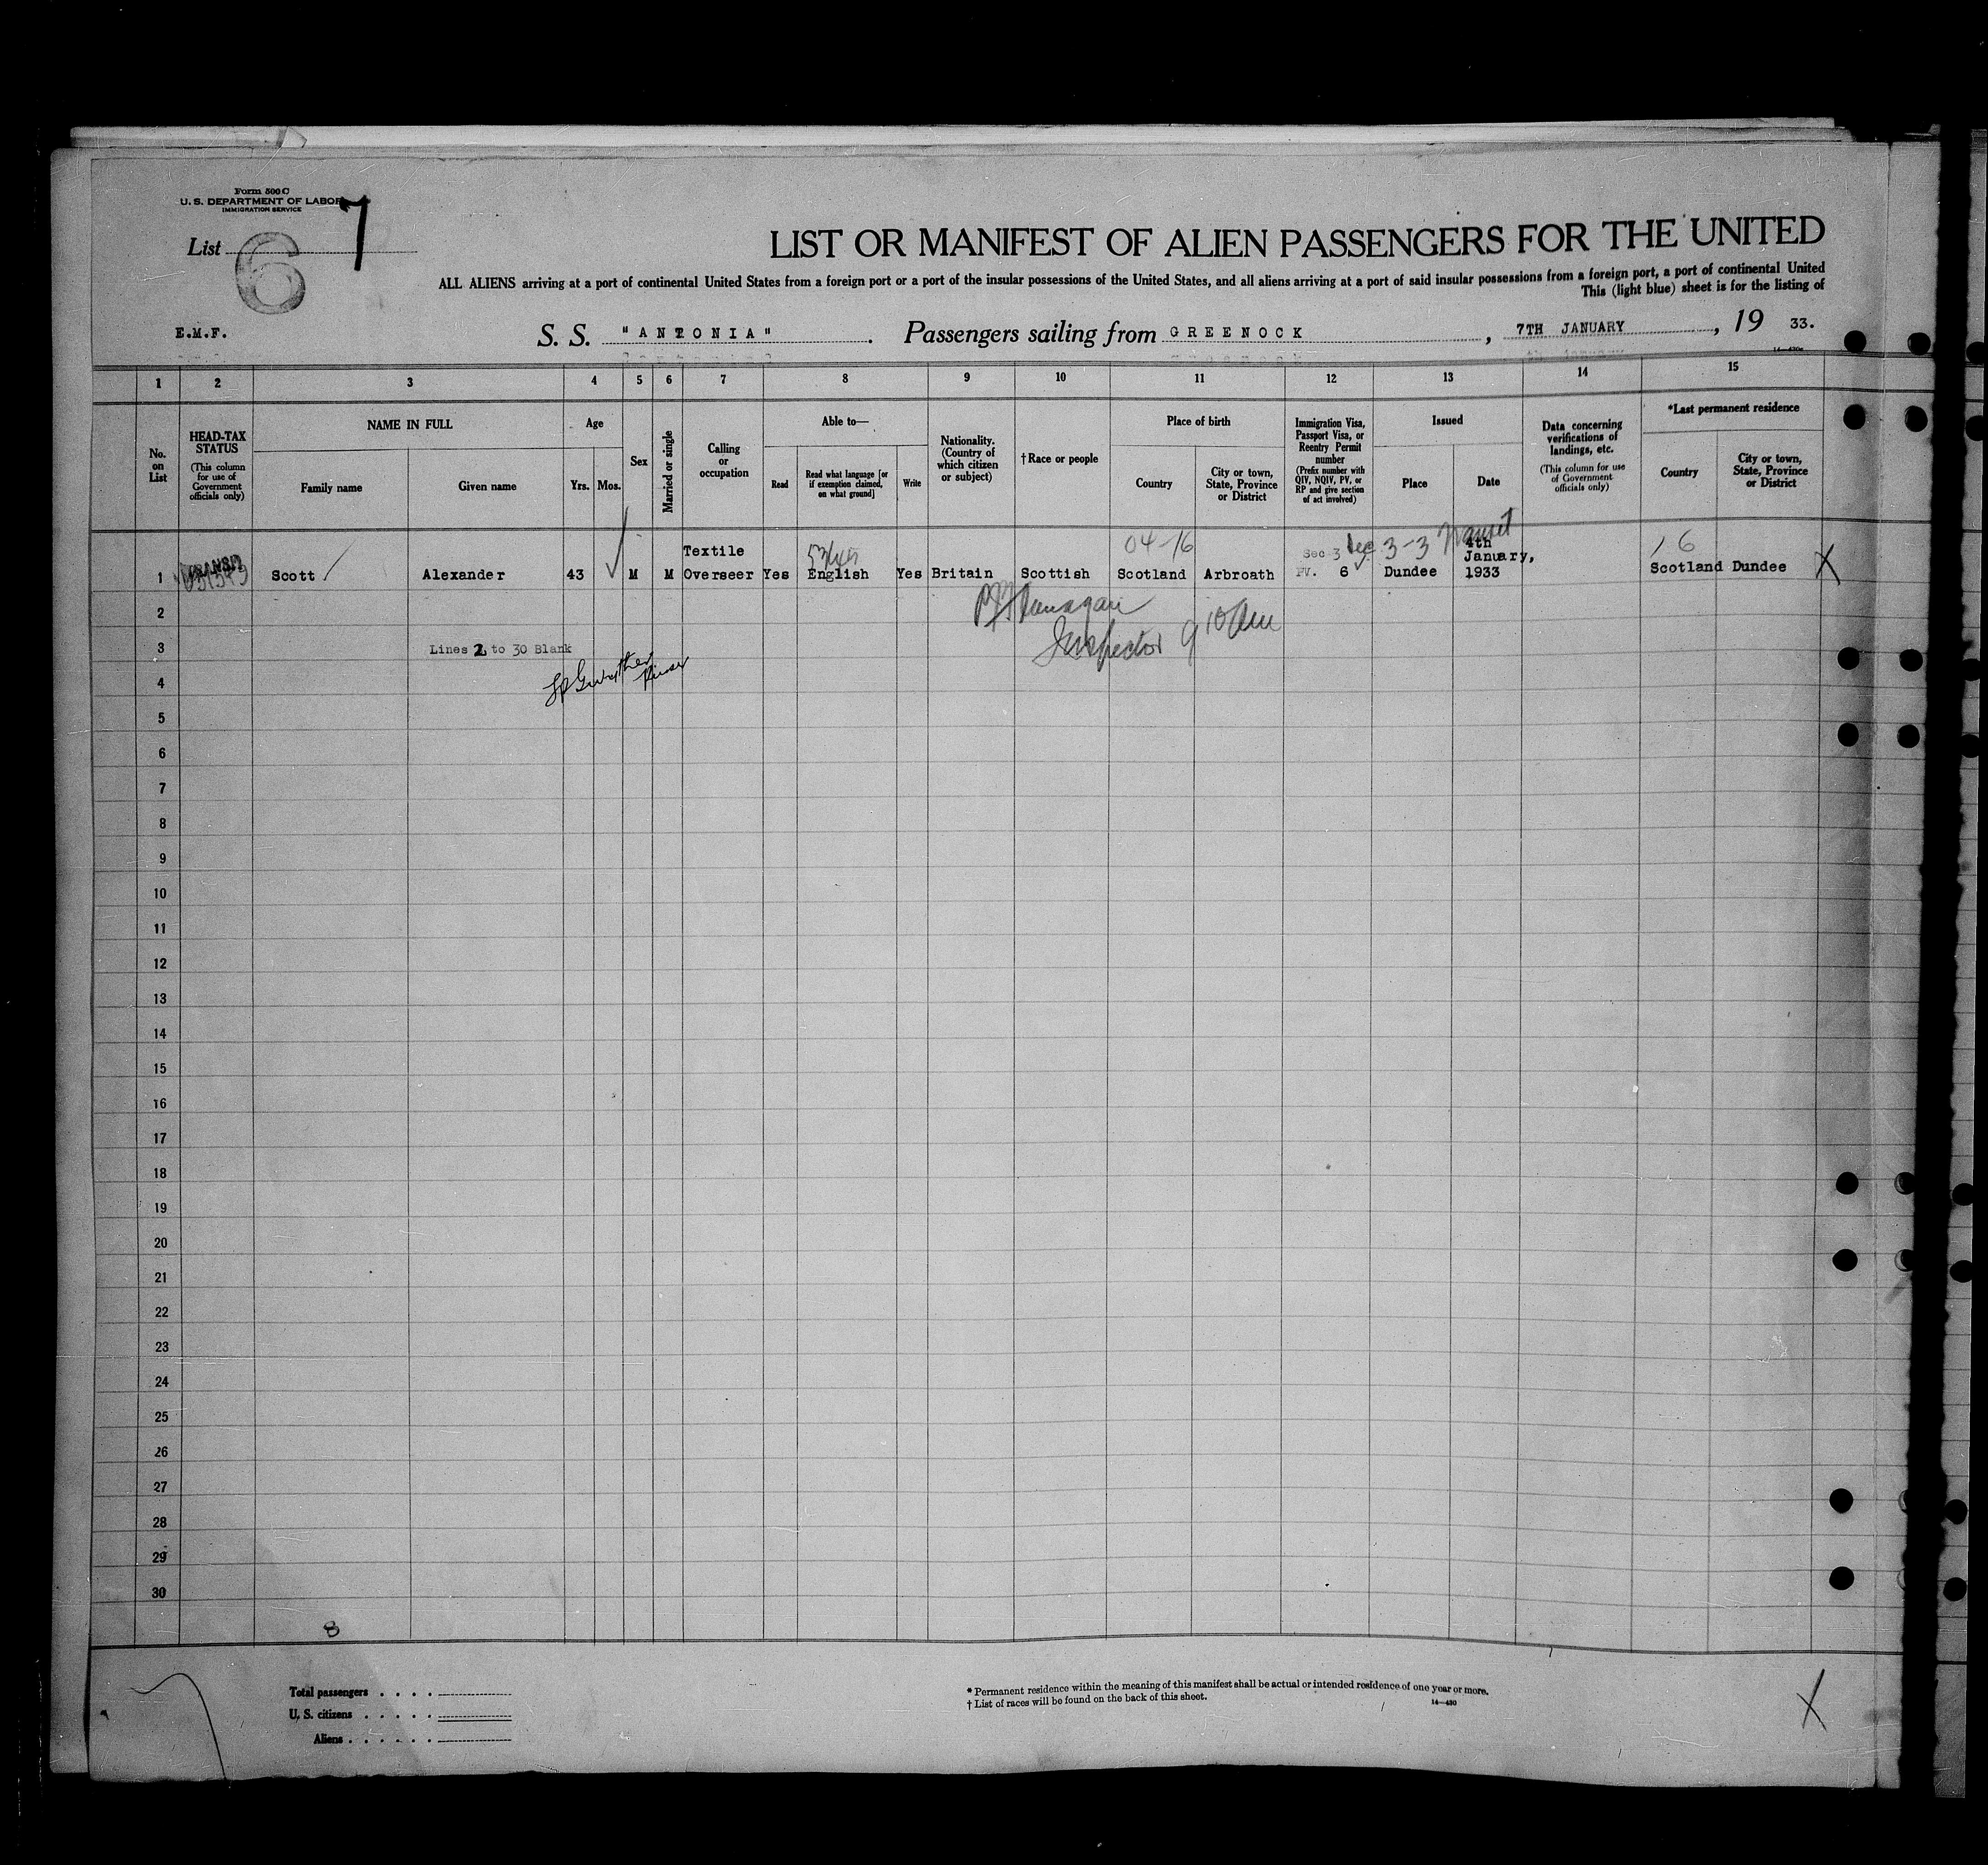 Form 500 C
U. S. DEPARTMENT OF LABOR
IMMIGRATION SERVICE
7
List
6
LIST OR MANIFEST OF ALIEN PASSENGERS FOR THE UNITED
ALL ALIENS arriving at a port of continental United States from a foreign port or a port of the insular possessions of the United States, and all aliens arriving at a port of said insular possessions from a foreign port, a port of continental United
This (light blue) sheet is for the listing of
E.M.F. S. S. "ANTONIA". Passengers sailing from GREENOCK, 7TH JANUARY, 19 33.
1 2 3 4 5 6 7 8 9 10 11 12 13 14 15
No. on List
HEAD-TAX STATUS
(This column for use of Government officials only)
NAME IN FULL
Family name Given name
Age
Yrs. Mos.
Sex
Married or single
Calling or occupation
Able to—
Read Read what language [or if exemption claimed, on what ground] Write
Nationality. (Country of which citizen or subject)
†Race or people
Place of birth
Country City or town, State, Province or District
Immigration Visa, Passport Visa, or Reentry Permit number
(Prefix number with QIV, NQIV, PV, or RP and give section of act involved)
Issued
Place Date
Data concerning verifications of landings, etc.
(This column for use of Government officials only)
*Last permanent residence
Country City or town, State, Province or District
04-16 Sec 3 3-3 Transit 16
1 TRANSIT Scott Alexander 43 M M Textile Overseer Yes English Yes Britain Scottish Scotland Arbroath PV. 6 Dundee 4th January, 1933 Scotland Dundee X
2
Inspector
3 Lines 2 to 30 Blank
4
5
6
7
8
9
10
11
12
13
14
15
16
17
18
19
20
21
22
23
24
25
26
27
28
29
30
8
Total passengers
U. S. citizens
Aliens
* Permanent residence within the meaning of this manifest shall be actual or intended residence of one year or more.
† List of races will be found on the back of this sheet.
14—430
X